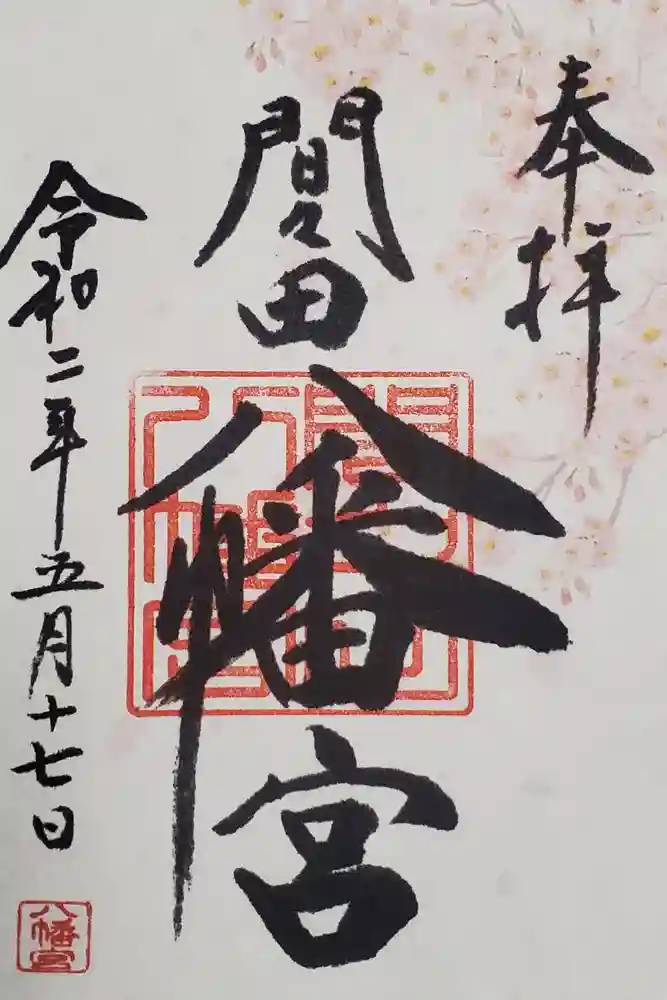 奉拝
間々田八幡宮
令和二年五月十七日
八幡宮